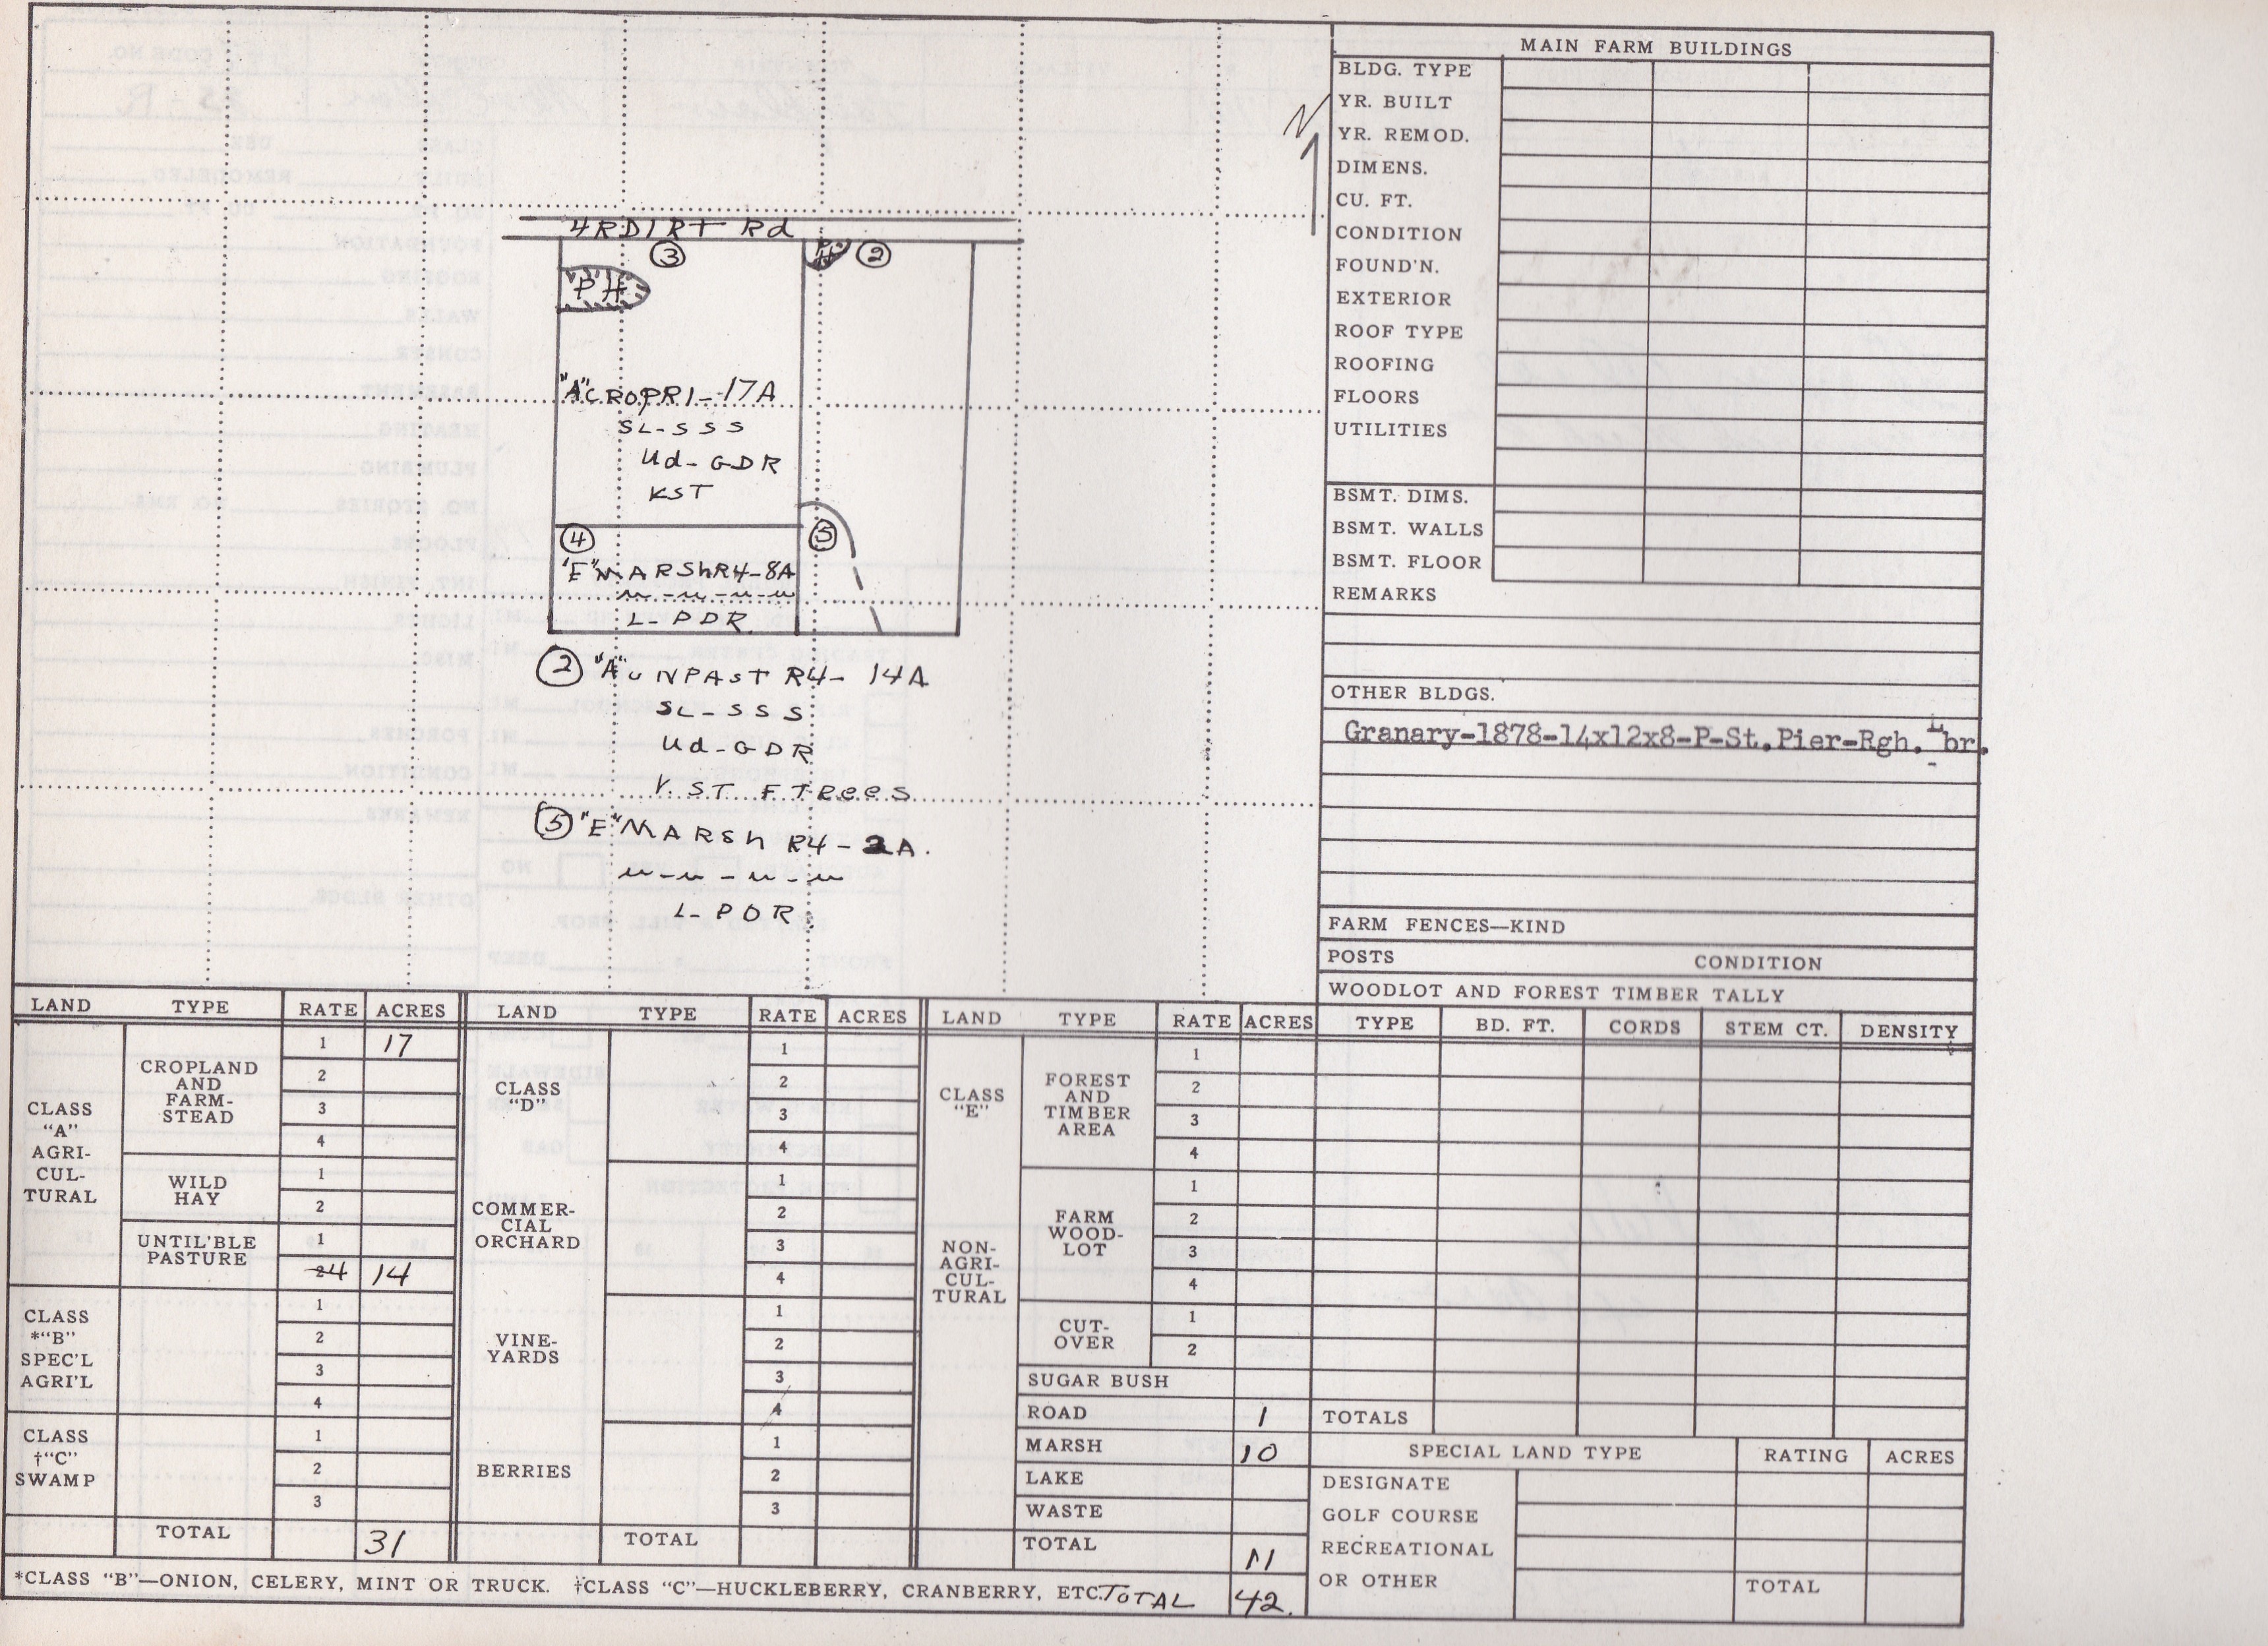 N
4 RDIRT Rd
③
②
PH
"A" CROPR1-17A
SL-SSS
Ud-GDR
KST
④
⑤
"E" MARShR4-8A
L-PDR
② "A" UNPAST R4- 14A
SL-SSS
Ud-GDR
ST FTRees
⑤ "E" MARSh R4-2A.
L-PDR
MAIN FARM BUILDINGS
BLDG. TYPE
YR. BUILT
YR. REMOD.
DIMENS.
CU. FT.
CONDITION
FOUND'N.
EXTERIOR
ROOF TYPE
ROOFING
FLOORS
UTILITIES
BSMT. DIMS.
BSMT. WALLS
BSMT. FLOOR
REMARKS
OTHER BLDGS.
Granary-1878-14x12x8-P-St.Pier-Rgh. Lbr.
FARM FENCES—KIND
POSTS CONDITION
WOODLOT AND FOREST TIMBER TALLY
TYPE BD. FT. CORDS STEM CT. DENSITY
TOTALS
SPECIAL LAND TYPE RATING ACRES
DESIGNATE
GOLF COURSE
RECREATIONAL
OR OTHER TOTAL
LAND TYPE RATE ACRES
CLASS
"A"
AGRI-
CUL-
TURAL
CROPLAND
AND
FARM-
STEAD
1 17
2
3
4
WILD
HAY
1
2
UNTIL'BLE
PASTURE
1
2 4 14
CLASS
*"B"
SPEC'L
AGRI'L
1
2
3
4
CLASS
†"C"
SWAMP
1
2
3
TOTAL 31
LAND TYPE RATE ACRES
CLASS
"D"
1
2
3
4
COMMER-
CIAL
ORCHARD
1
2
3
4
VINE-
YARDS
1
2
3
4
BERRIES
1
2
3
TOTAL
LAND TYPE RATE ACRES
CLASS
"E"
NON-
AGRI-
CUL-
TURAL
FOREST
AND
TIMBER
AREA
1
2
3
4
FARM
WOOD-
LOT
1
2
3
4
CUT-
OVER
1
2
SUGAR BUSH
ROAD 1
MARSH 10
LAKE
WASTE
TOTAL 11
*CLASS "B"—ONION, CELERY, MINT OR TRUCK. †CLASS "C"—HUCKLEBERRY, CRANBERRY, ETC. TOTAL 42.